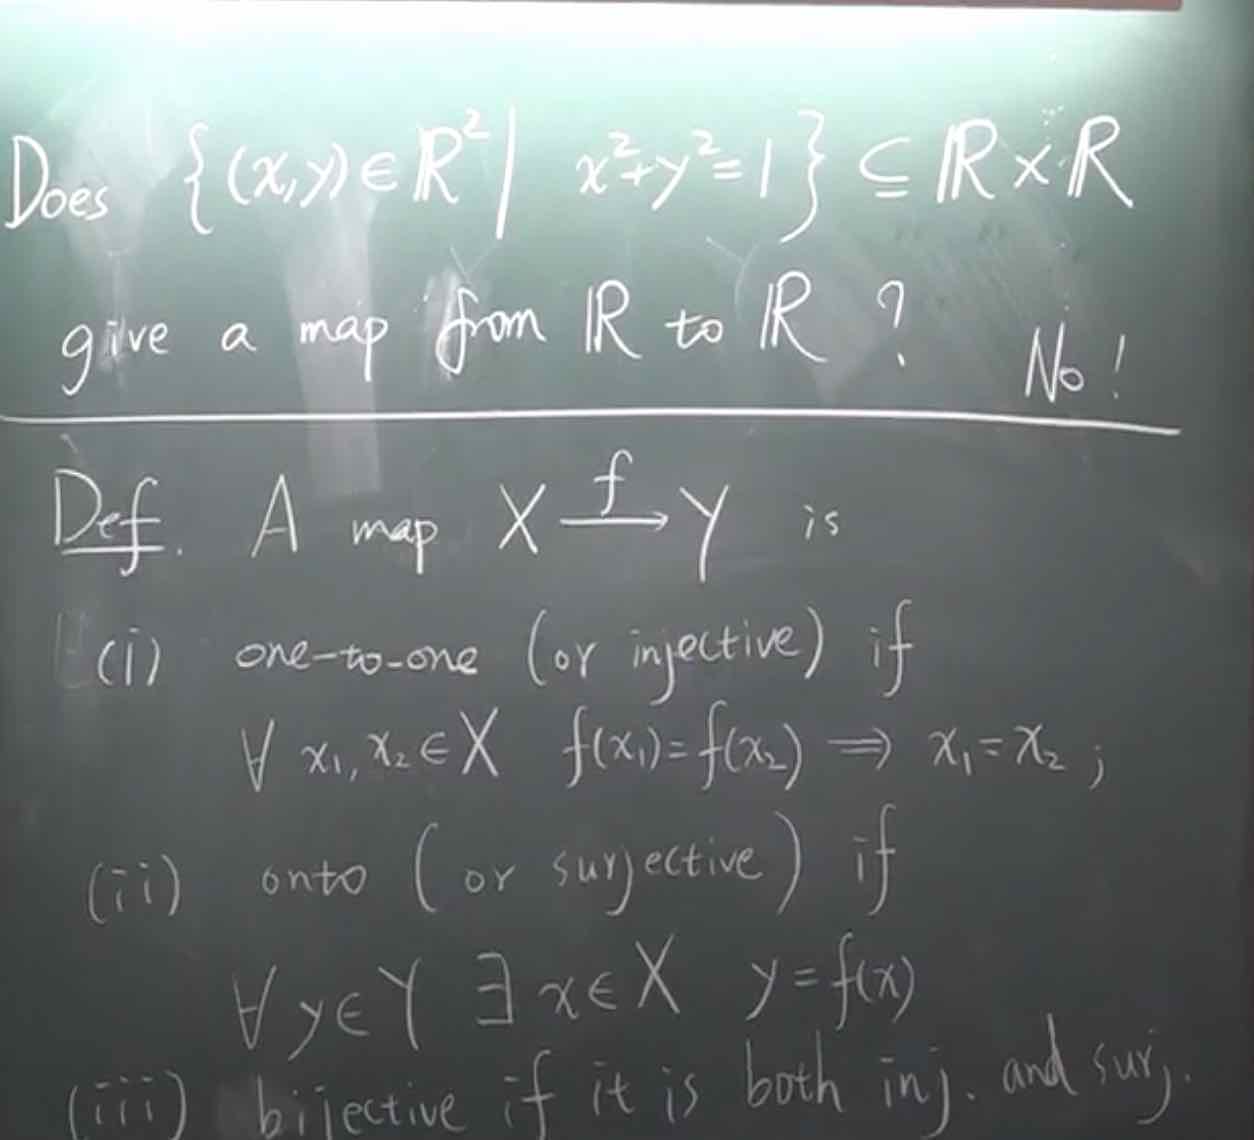 Does {(x,y)∈ℝ² | x²+y²=1} ⊆ ℝ×ℝ
give a map from ℝ to ℝ ? No!
Def. A map X —f→ Y is
(i) one-to-one (or injective) if
∀ x₁, x₂ ∈ X f(x₁)=f(x₂) ⟹ x₁=x₂ ;
(ii) onto (or surjective) if
∀ y∈Y ∃ x∈X y=f(x)
(iii) bijective if it is both inj. and surj.